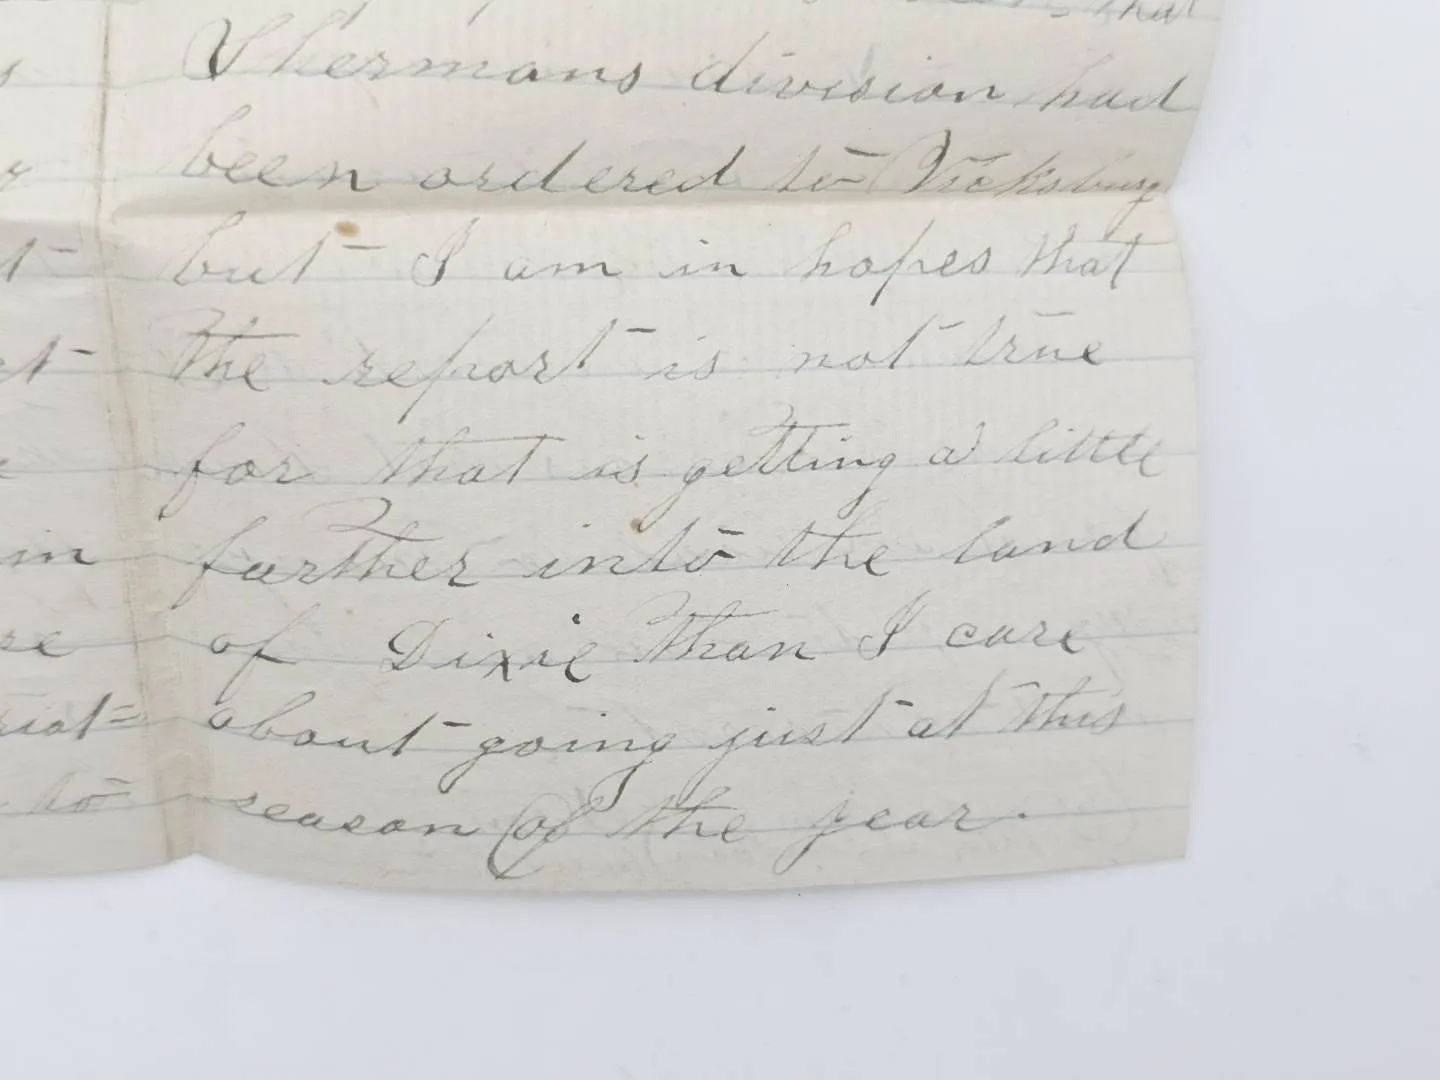 that
Shermans division had
been ordered to Vicksburg
but I am in hopes that
the report is not true
for that is getting a little
farther into the land
in
of Dixie than I care
about going just at this
to
season of the year.